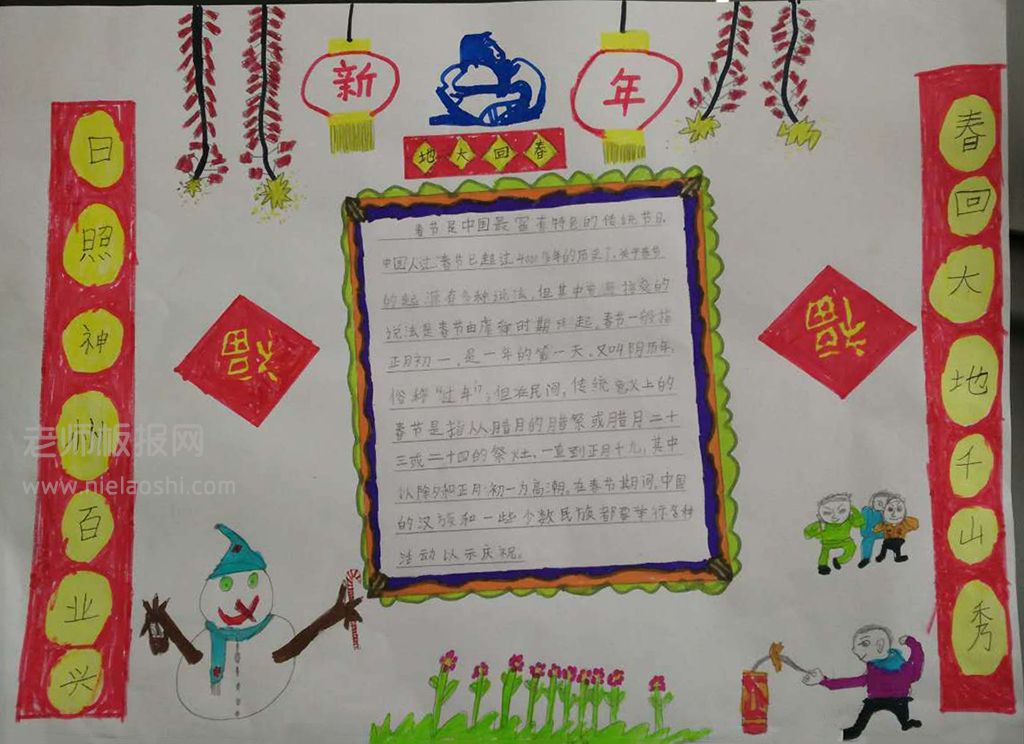 新年
地大回春
春回大地千山秀
日照神州百业兴
福
福
春节是中国最富有特色的传统节日
中国人过春节已超过4000多年的历史了,关于春节
的起源有多种说法,但其中
说法是春节由虞舜时期兴起,春节一般指
正月初一,是一年的第一天,又叫阴历年,
俗称"过年",但在民间,传统意义上的
春节是指从腊月的腊祭或腊月二十
三或二十四的祭灶,一直到正月十九,其中
以除夕和正月初一为高潮。在春节期间,中国
的汉族和一些少数民族都要举行各种
活动以示庆祝。
老师板报网
www.nielaoshi.com